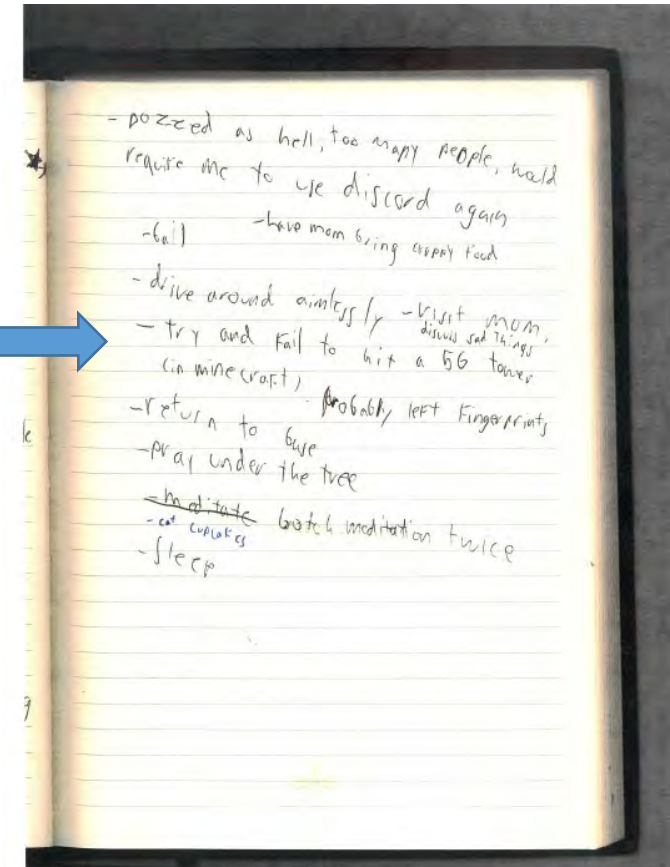 - pozzed as hell, too many people, would
require me to use discord again
- bail - have mom bring crappy food
- drive around aimlessly - visit mom,
discuss sad things
- try and fail to hit a 5G tower
(in minecraft)
- Probably left fingerprints
- return to base
- pray under the tree
- meditate botch meditation twice
- eat cupcakes
- sleep